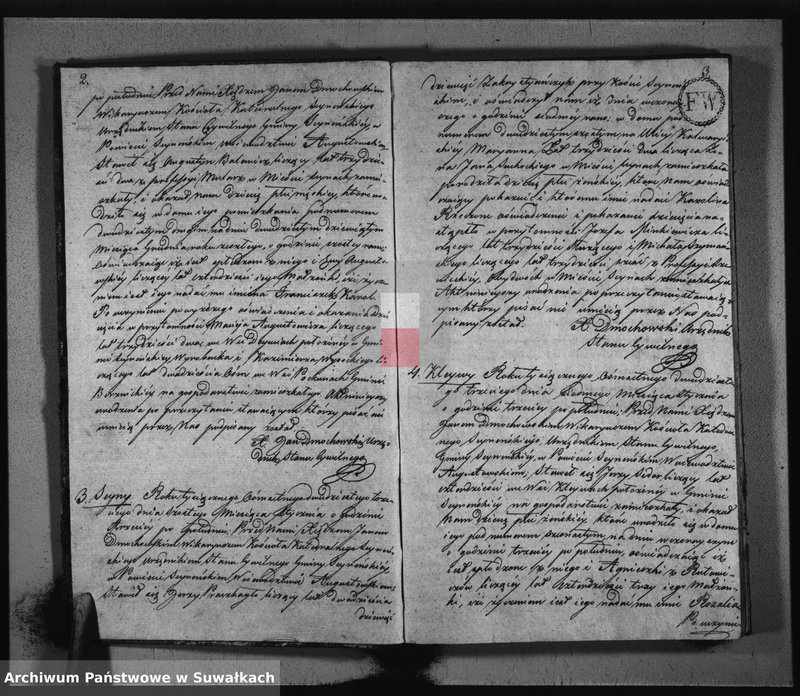 2.
po południu Przed Nami Xiędzem Janem Dmochowskim
Wikaryuszem Kościoła Katedralnego Seyneńskiego
Urzędnikiem Stanu Cywilnego Gminy Seyneńskiey w
Powiecie Seyneńskim Woiewództwie Augustowskim
Stawił się Augustyn liczący lat trzydzieś-
ci dwa z professyi Mularz w Mieście Seynach zamie-
szkały, i okazał Nam dziecię płci męskiey, które uro-
dziło się w domu iego pomieszkania pod numerem
dwudziestym drugim na dniu dwudziestym dziewiątym
Miesiąca Grudnia roku zeszłego, o godzinie szóstey rano;
oświadczaiąc iż iest spłodzone z niego i Ewy
liczącey lat czterdzieści iego Małżonki, iż życze-
niem iest iego nadać mu imiona Franciszek Karol.
Po uczynieniu powyższego oświadczenia i okazaniu dzie-
cięcia w przytomności Macieja Augustewicza liczącego
lat trzydzieści dwa, we Wsi położoney w Gmi-
nie Seyneńskiey Wyrobnika, i Kazimierza Wysockiego li-
czącego lat dwadzieścia ośm we Wsi Gminie
na gospodarstwie zamieszkałego. Akt ninieyszy
po przeczytaniu stawaiącym którzy pisać nie
umieią przez Nas podpisany został.
X. Jan Dmochowski Urzę-
dnik Stanu Cywilnego
3. Seyny Roku tysiącznego Ośmsetnego dwudziestego trze-
ciego dnia trzeciego Miesiąca Stycznia o godzinie
trzeciey po południu, Przed Nami Xiędzem Janem
Dmochowskim Wikaryuszem Kościoła Katedralnego Seyneń-
skiego Urzędnikiem Stanu Cywilnego Gminy Seyneńskiey,
w Powiecie Seyneńskim Woiewództwie Augustowskim
Stawił się Jerzy liczący lat dwadzieścia
dziewięć
3
FW
dziewięć Zakrystyańczyk przy Kościele Seyneń-
skim, i oświadczył nam iż dnia wczoray-
szego o godzinie siódmey rano, w domu pod
numerem dwudziestym piątym na Ulicy Kalwaryi-
skiey Maryanna lat trzydzieści dwa licząca żo-
na Jana w Mieście Seynach zamieszkała
porodziła dziecię płci żeńskiey, które Nam oświad-
czaiący pokazał, i któremu imie nadał Karolina
Rzeczone oświadczenie i pokazanie dziecięcia na-
stąpiło w przytomności Józefa Minkiewicza li-
czącego lat trzydzieści i Michała
liczącego lat trzydzieści pięć, z Professyi
obydwóch w Mieście Seynach zamieszkałych
Akt ninieyszy urodzenia po przeczytaniu stawaią-
cym którzy pisać nie umieią przez Nas pod-
pisany został.
X. Dmochowski Urzędnik
Stanu Cywilnego
4. Klejwy Roku tysiącznego Ośmsetnego dwudziest-
ego trzeciego dnia siódmego Miesiąca Stycznia
o godzinie trzeciey po południu, Przed Nami Xiędzem
Janem Dmochowskim Wikaryuszem Kościoła Katedral-
nego Seyneńskiego, Urzędnikiem Stanu Cywilnego
Gminy Seyneńskiey, w Powiecie Seyneńskim, Woiewództwie
Augustowskim, Stawił się Jerzy liczący lat
czterdzieści we Wsi Klejwach położoney w Gminie
Seyneńskiey na gospodarstwie zamieszkały, i okazał
Nam dziecię płci żeńskiey które urodziło się w domu
iego pod numerem trzynastym na dniu wczorayszym
o godzinie trzeciey po południu, oświadczaiąc iż
iest spłodzone z niego i Agnieszki z
liczącey lat czterdzieści trzy iego Małżon-
ki, iż życzeniem iest iego nadać mu imie Rozalia
Po uczynie-
Archiwum Państwowe w Suwałkach